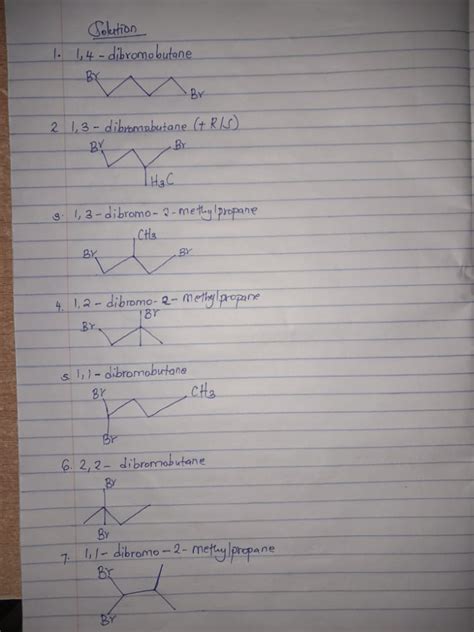 Solution
1. 1,4 - dibromobutane
Br
Br
2 1,3 - dibromabutane (+ R/S)
Br Br
H3C
3. 1,3 - dibromo - 2 - methylpropane
CH3
Br Br
4. 1,2 - dibromo - 2 - methylpropane
Br
Br
5. 1,1 - dibromobutane
Br CH3
Br
6. 2,2 - dibromobutane
Br
Br
7. 1,1 - dibromo - 2 - methylpropane
Br
Br